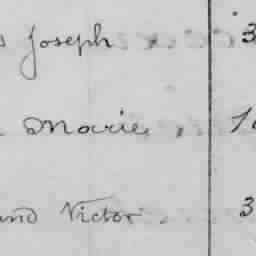 s Joseph 3
Marie 1
and Victor 3